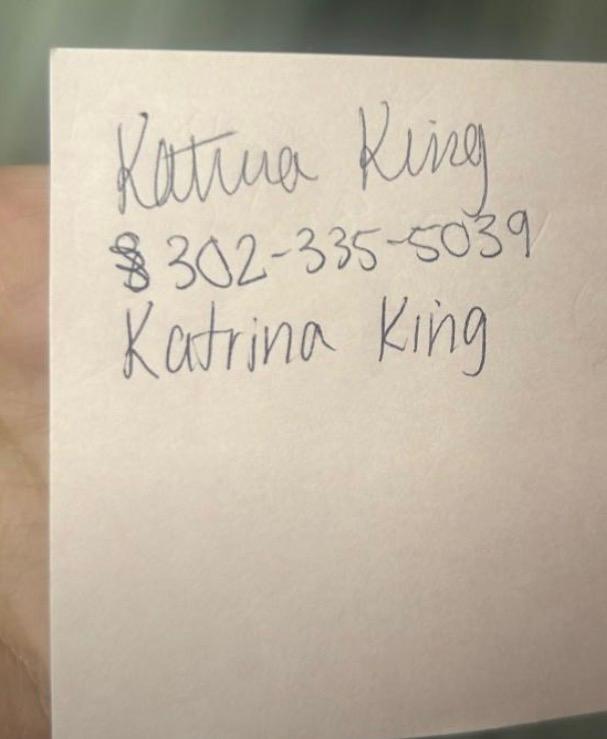 Katrina King
302-335-5039
Katrina King